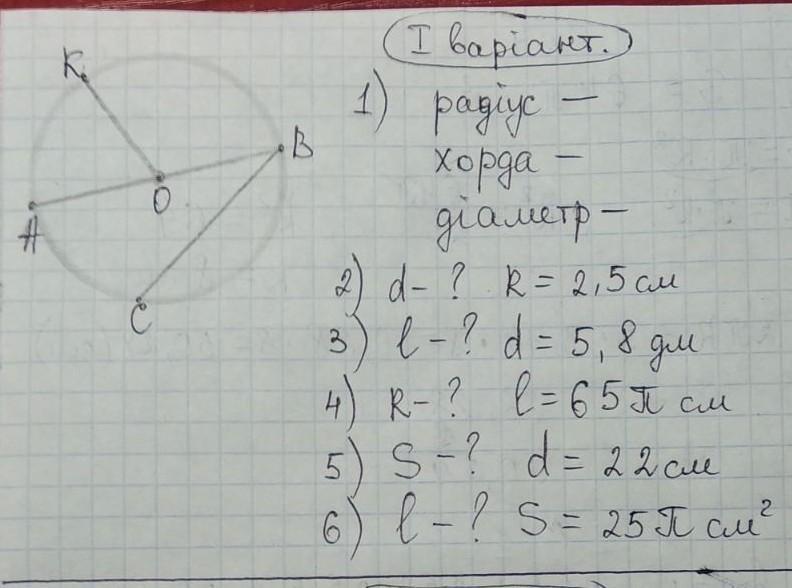 I варіант.
K
B
O
A
C
1) радіус —
хорда —
діаметр —
2) d - ? R = 2,5 см
3) l - ? d = 5,8 дм
4) R - ? l = 65π см
5) S - ? d = 22 см
6) l - ? S = 25π см²